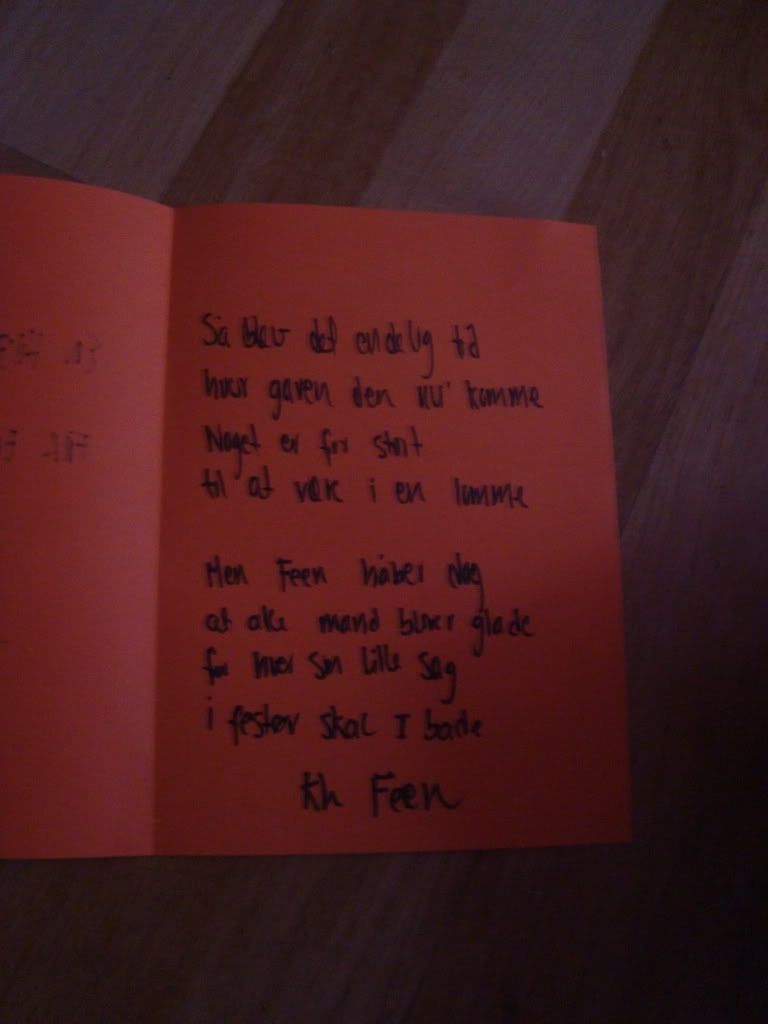 Så blev det endelig tid
hvor gaven den ku' komme
Noget er for stort
til at være i en lomme
Men Feen håber dog
at alle mand bliver glade
for hver sin lille sag
i fester skal I bade
Kh Feen